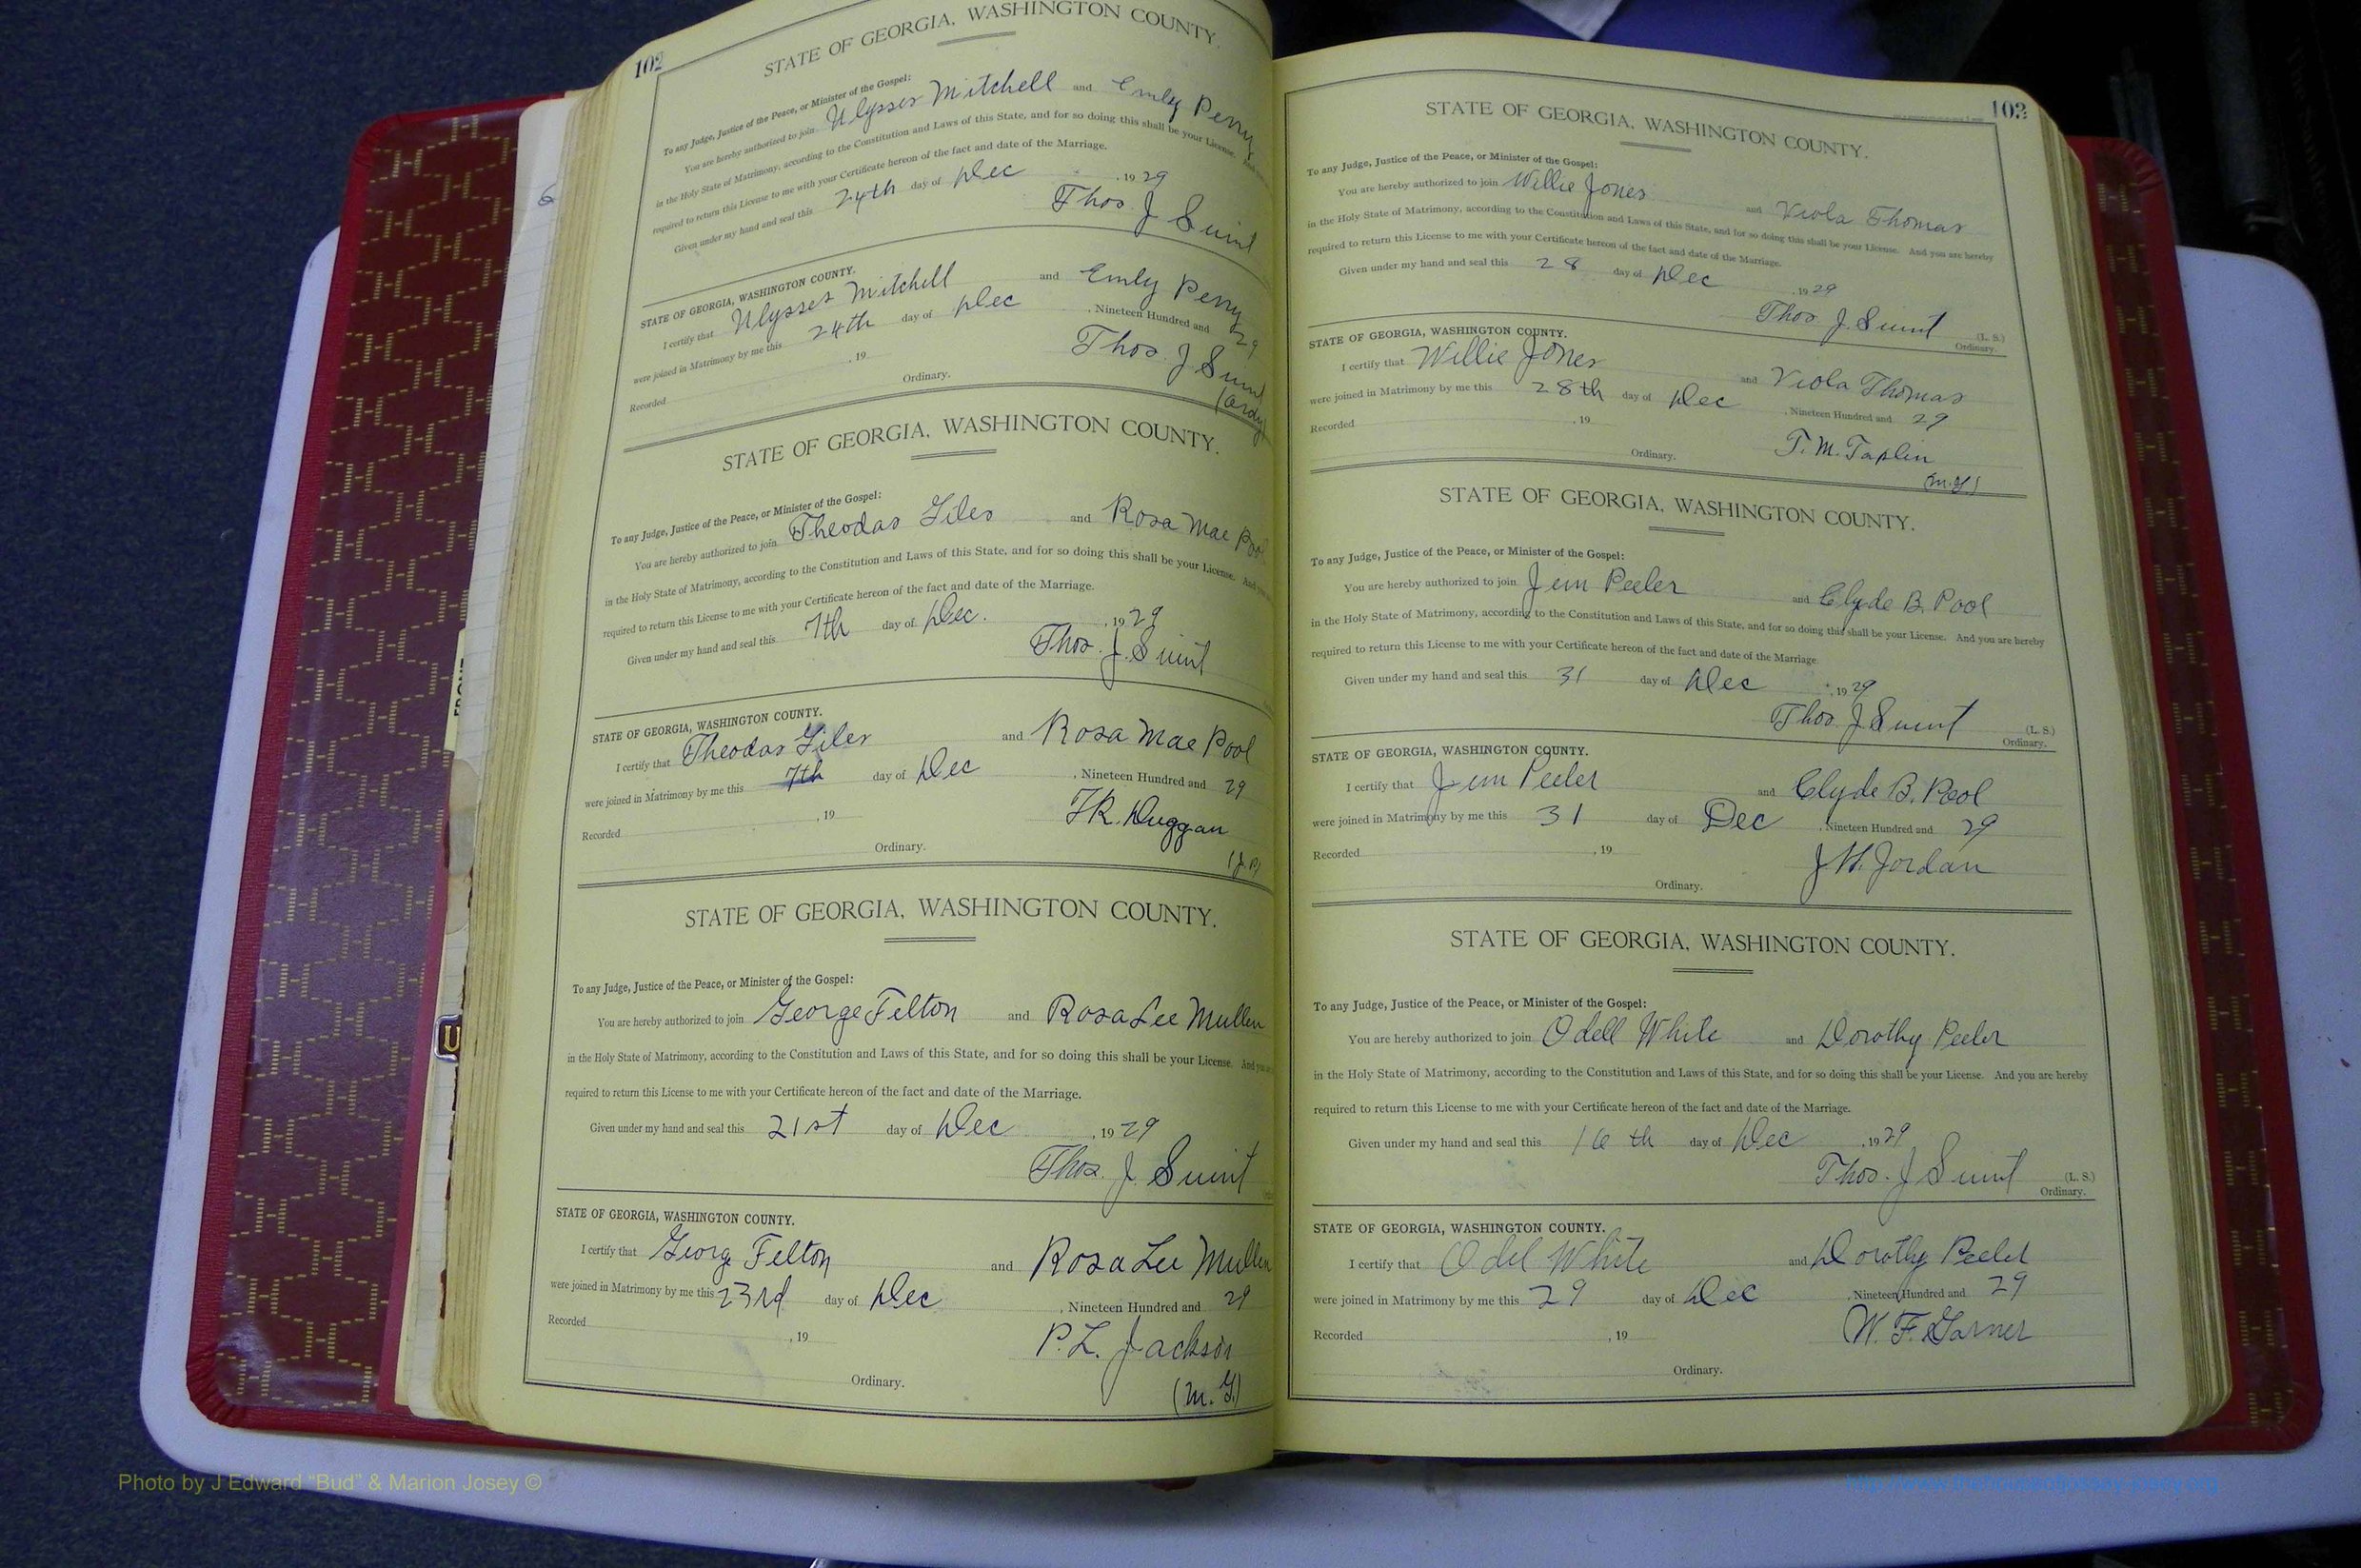 102
STATE OF GEORGIA, WASHINGTON COUNTY.
To any Judge, Justice of the Peace, or Minister of the Gospel:
You are hereby authorized to join Ulysses Mitchell and Emily Perry
in the Holy State of Matrimony, according to the Constitution and Laws of this State, and for so doing this shall be your License. And
required to return this License to me with your Certificate hereon of the fact and date of the Marriage.
Given under my hand and seal this 24th day of Dec , 19 29
Thos. J. Swint
STATE OF GEORGIA, WASHINGTON COUNTY.
I certify that Ulysses Mitchell and Emily Perry
were joined in Matrimony by me this 24th day of Dec , Nineteen Hundred and 29
Recorded , 19 Thos. J. Swint
Ordinary. (Ordy)
STATE OF GEORGIA, WASHINGTON COUNTY.
To any Judge, Justice of the Peace, or Minister of the Gospel:
You are hereby authorized to join Theodas Giles and Rosa Mae Pool
in the Holy State of Matrimony, according to the Constitution and Laws of this State, and for so doing this shall be your License. And
required to return this License to me with your Certificate hereon of the fact and date of the Marriage.
Given under my hand and seal this 7th day of Dec. , 19 29
Thos. J. Swint
STATE OF GEORGIA, WASHINGTON COUNTY.
I certify that Theodas Giles and Rosa Mae Pool
were joined in Matrimony by me this 7th day of Dec , Nineteen Hundred and 29
Recorded , 19 Duggan
Ordinary. (J.P)
STATE OF GEORGIA, WASHINGTON COUNTY.
To any Judge, Justice of the Peace, or Minister of the Gospel:
You are hereby authorized to join George Felton and Rosa Lee Mullen
in the Holy State of Matrimony, according to the Constitution and Laws of this State, and for so doing this shall be your License. And you
required to return this License to me with your Certificate hereon of the fact and date of the Marriage.
Given under my hand and seal this 21st day of Dec , 19 29
Thos. J. Swint
STATE OF GEORGIA, WASHINGTON COUNTY.
I certify that Georg Felton and Rosa Lee Mullen
were joined in Matrimony by me this 23rd day of Dec , Nineteen Hundred and 29
Recorded , 19 P. L. Jackson
Ordinary. (M. G.)
103
STATE OF GEORGIA, WASHINGTON COUNTY.
To any Judge, Justice of the Peace, or Minister of the Gospel:
You are hereby authorized to join Willie Jones and Viola Thomas
in the Holy State of Matrimony, according to the Constitution and Laws of this State, and for so doing this shall be your License. And you are hereby
required to return this License to me with your Certificate hereon of the fact and date of the Marriage.
Given under my hand and seal this 28 day of Dec , 19 29
Thos. J. Swint (L. S.)
Ordinary.
STATE OF GEORGIA, WASHINGTON COUNTY.
I certify that Willie Jones and Viola Thomas
were joined in Matrimony by me this 28th day of Dec , Nineteen Hundred and 29
Recorded , 19 T. M. Taplin
Ordinary. (M.G)
STATE OF GEORGIA, WASHINGTON COUNTY.
To any Judge, Justice of the Peace, or Minister of the Gospel:
You are hereby authorized to join Jim Peeler and Clyde B. Pool
in the Holy State of Matrimony, according to the Constitution and Laws of this State, and for so doing this shall be your License. And you are hereby
required to return this License to me with your Certificate hereon of the fact and date of the Marriage.
Given under my hand and seal this 31 day of Dec , 19 29
Thos. J. Swint (L. S.)
Ordinary.
STATE OF GEORGIA, WASHINGTON COUNTY.
I certify that Jim Peeler and Clyde B. Pool
were joined in Matrimony by me this 31 day of Dec , Nineteen Hundred and 29
Recorded , 19 J. H. Jordan
Ordinary.
STATE OF GEORGIA, WASHINGTON COUNTY.
To any Judge, Justice of the Peace, or Minister of the Gospel:
You are hereby authorized to join Odell White and Dorothy Peeler
in the Holy State of Matrimony, according to the Constitution and Laws of this State, and for so doing this shall be your License. And you are hereby
required to return this License to me with your Certificate hereon of the fact and date of the Marriage.
Given under my hand and seal this 16th day of Dec , 19 29
Thos. J Swint (L. S.)
Ordinary.
STATE OF GEORGIA, WASHINGTON COUNTY.
I certify that Odel White and Dorothy Peeler
were joined in Matrimony by me this 29 day of Dec , Nineteen Hundred and 29
Recorded , 19 W. F. Garner
Ordinary.
Photo by J Edward "Bud" & Marion Josey ©